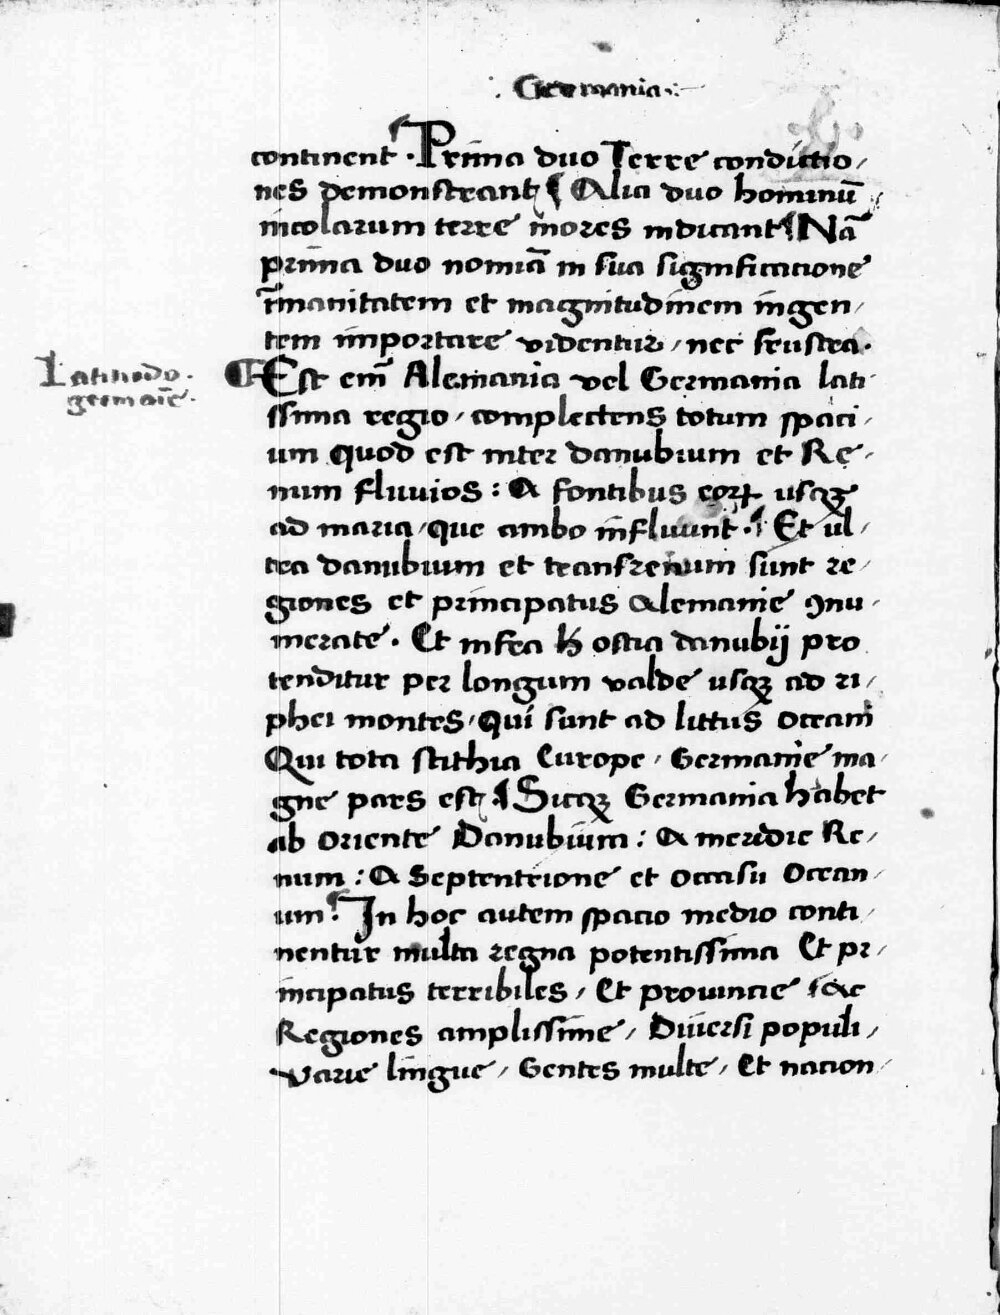 . Germania .
continent . Prima duo Terre conditio /
nes demonstrant ¶ Alia duo hominū
incolarum terre mores indicant ¶ Nā
prima duo nomīa in sua significatione
īmanitatem et magnitudinem ingen /
tem importare videntur / nec frustra .
Latitudo .
germaīe .
¶ Est em̄ Alemania vel Germania lati
ssima regio / complectens totum spaci /
um quod est inter danubium et Re /
num fluvios : A fontibus eoꝝ usqꝫ
ad maria / que ambo influunt . ¶ Et ul /
tra danubium et transrenum sunt re /
giones et principatus Alemanie ꝯnu /
merate . Et infra h ostia danubij pro
tenditur per longum valde usqꝫ ad ri /
phei montes / Qui sunt ad littus Oceani
Qui tota scithia Europe / Germanie ma /
gne pars est ¶ Sicqꝫ Germania habet
ab Oriente Danubium : A meridie Re /
num : A Septentrione et Occasu Ocean /
um . ¶ In hoc autem spacio medio conti /
nentur multa regna potentissima Et pr /
incipatus terribiles / Et provincie / ac
Regiones amplissime / Diversi populi /
Varie lingue / Gentes multe / Et nacion /